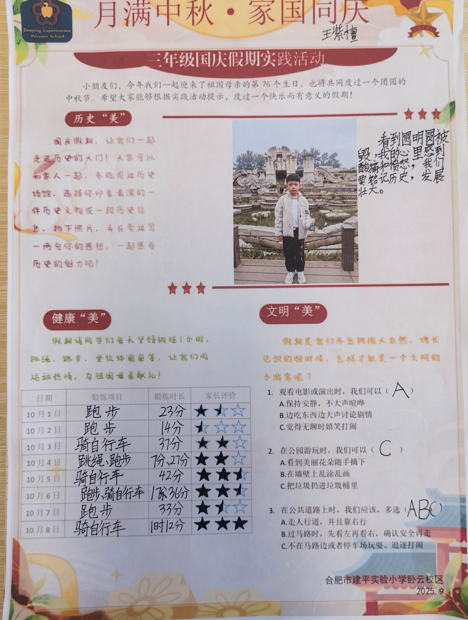 Jianping Experimental
Primary School
月满中秋·家国同庆
三年级国庆假期实践活动
小朋友们，今年我们一起迎来了祖国母亲的第 76 个生日，也将共同度过一个团圆的
中秋节。希望大家能够根据实践活动提示，度过一个快乐而有意义的假期！
历史“美”
国庆假期，让我们一起
走进历史的大门！大家可以
和家人一起，参观周边历史
场馆，选择你印象最深的一
件历史文物或一段历史信
息，拍下照片，并在旁边写
一两句你的感想，一起感受
历史的魅力吧！
看到圆明园被
毁，我的心里感到
健康“美”
文明“美”
假期请同学们每天坚持锻炼1小时，
跳绳、跑步、坐位体前屈等，让我们用
运动热情，为祖国母亲献礼！
假期是我们外出拥抱大自然，增长
见识的好时候，怎样才能是一个文明的
小游客呢？
日期 锻炼项目 锻炼时长 家长评价
10 月 1 日 跑步 23分
10 月 2 日 跑步 14分
10 月 3 日 骑自行车 37分
10 月 4 日 跳绳、跑步 7分、27分
10 月 5 日 骑自行车 42分
10 月 6 日 跑步、骑自行车
10 月 7 日 跑步 33分
10 月 8 日 骑自行车 1时12分
1. 观看电影或演出时，我们可以（A）
A.保持安静，不大声喧哗
B.边吃东西边大声讨论剧情
C.觉得无聊时嬉笑打闹
2. 在公园游玩时，我们可以（C）
A.看到美丽花朵随手摘下
B.在墙壁上乱涂乱画
C.把垃圾扔进垃圾桶里
3. 在公共道路上时，我们应该，多选（
A.走人行道，并且靠右行
B.过马路时，先看左再看右，确认安全再走
C.不在马路边或者停车场玩耍、追逐打闹
合肥市建平实验小学卧云校区
2025. 9